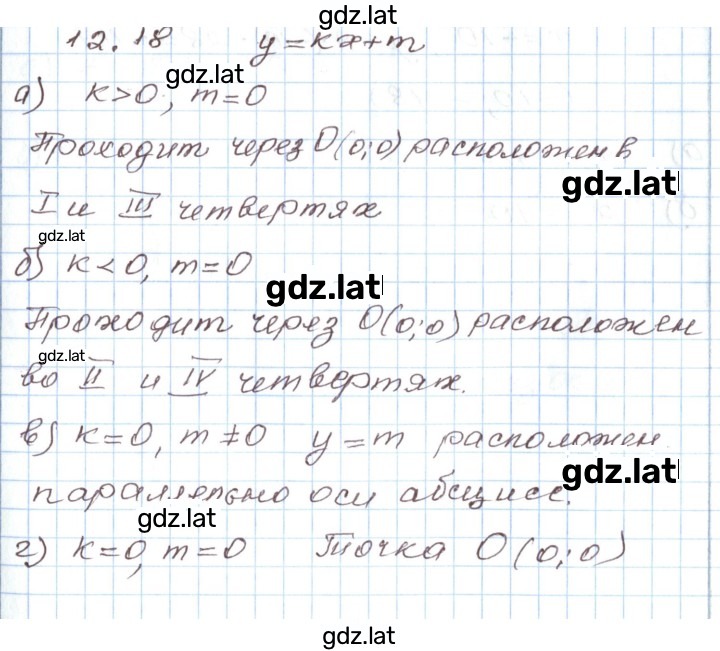 gdz.lat
12.18 y=kx+m
gdz.lat
а) k>0, m=0
Проходит через O(0;0) расположен в
gdz.lat
I и III четвертях
gdz.lat
б) k<0, m=0
gdz.lat
Проходит через O(0;0) расположен
gdz.lat
во II и IV четвертях.
в) k=0, m≠0 y=m расположен
gdz.lat
параллельно оси абсцисс.
gdz.lat
г) k=0, m=0 Точка O(0;0)
gdz.lat